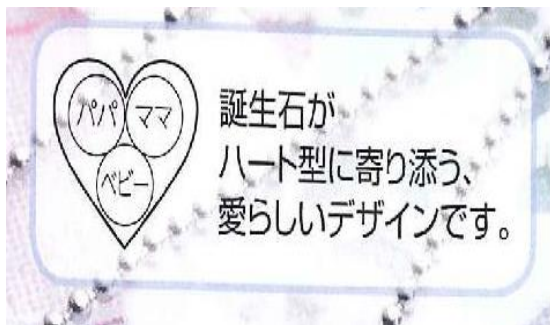 パパ ママ
ベビー
誕生石が
ハート型に寄り添う、
愛らしいデザインです。